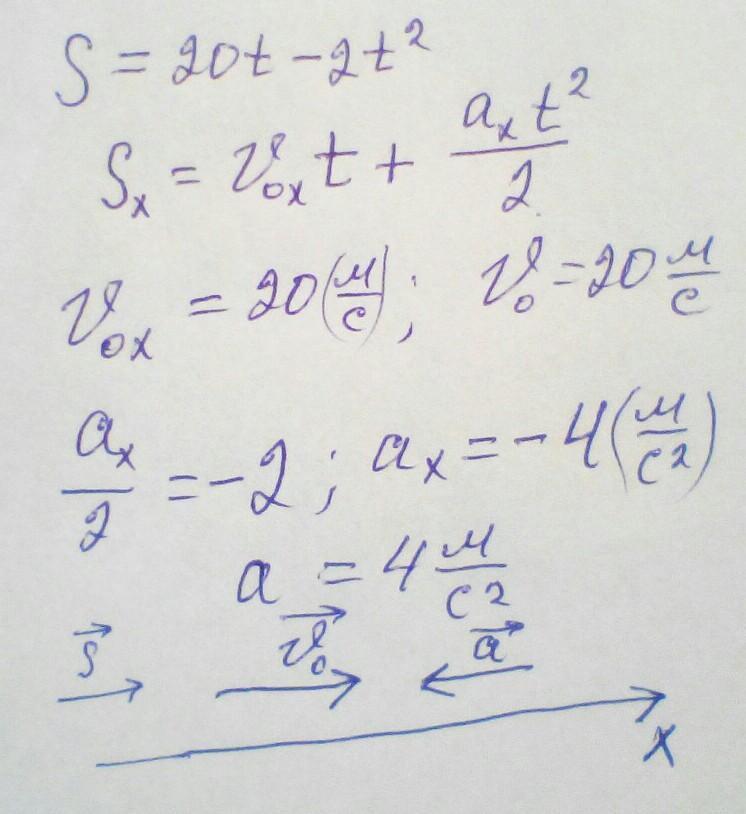 S = 20t - 2t²
Sₓ = v₀ₓt + aₓt²/2
v₀ₓ = 20(м/с); v₀ = 20 м/с
aₓ/2 = -2; aₓ = -4(м/с²)
a = 4 м/с²
s⃗ v⃗₀ a⃗
x